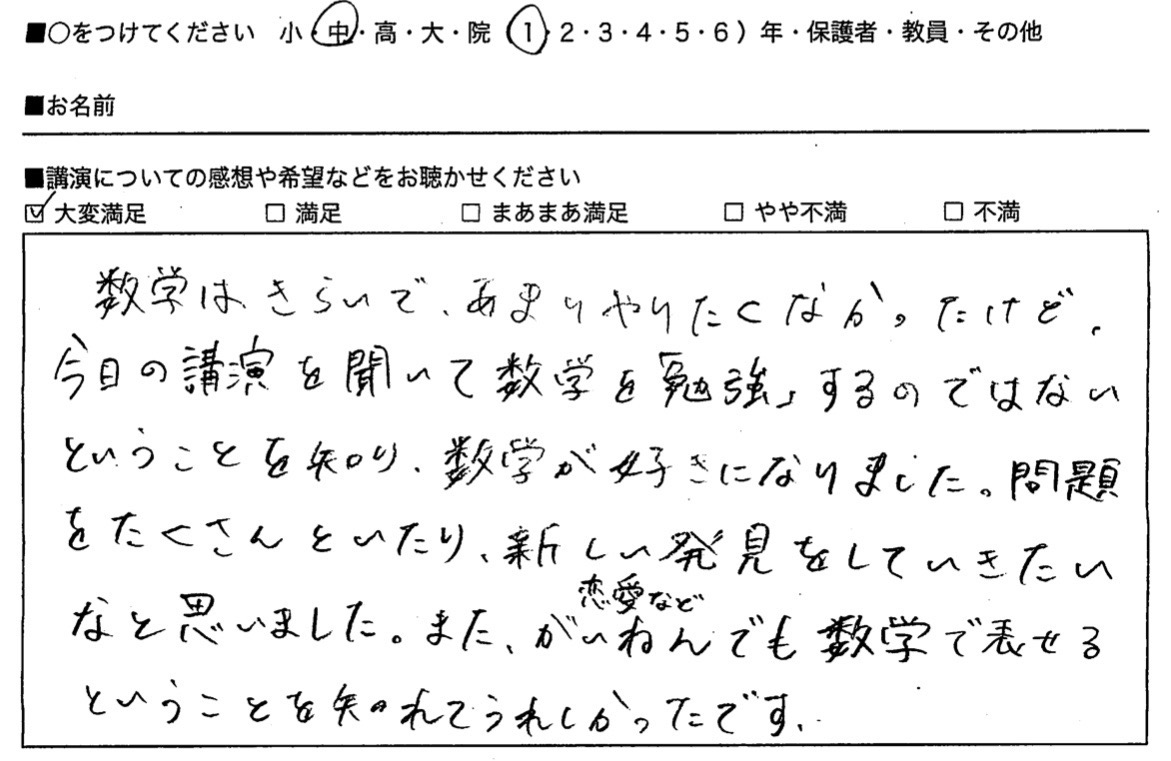 ■○をつけてください 小・中・高・大・院 (1・2・3・4・5・6)年・保護者・教員・その他
■お名前
■講演についての感想や希望などをお聴かせください
☑大変満足 □満足 □まあまあ満足 □やや不満 □不満
数学はきらいで、あまりやりたくなかったけど、
今日の講演を聞いて数学を「勉強」するのではない
ということを知り、数学が好きになりました。問題
をたくさんといたり、新しい発見をしていきたい
恋愛など
なと思いました。また、がいねんでも数学で表せる
ということを知れてうれしかったです。